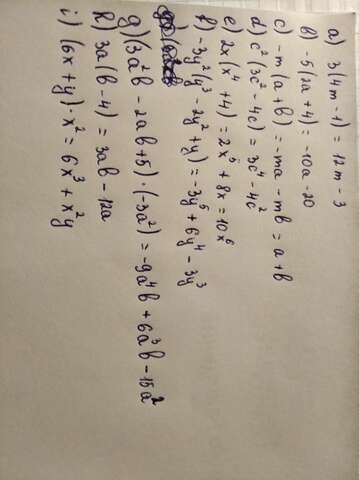 a) 3(4m-1) = 12m-3
b) -5(2a+4) = -10a-20
c) -m(a+b) = -ma-mb = a+b
d) c²(3c²-4c) = 3c⁴-4c²
e) 2x(x⁴+4) = 2x⁵+8x = 10x⁶
f) -3y²(y³-2y²+y) = -3y⁶+6y⁴-3y³
g) (3a²b - 2ab+5)·(-3a²) = -9a⁴b + 6a³b - 15a²
h) 3a(b-4) = 3ab-12a
i) (6x+y)·x² = 6x³+x²y